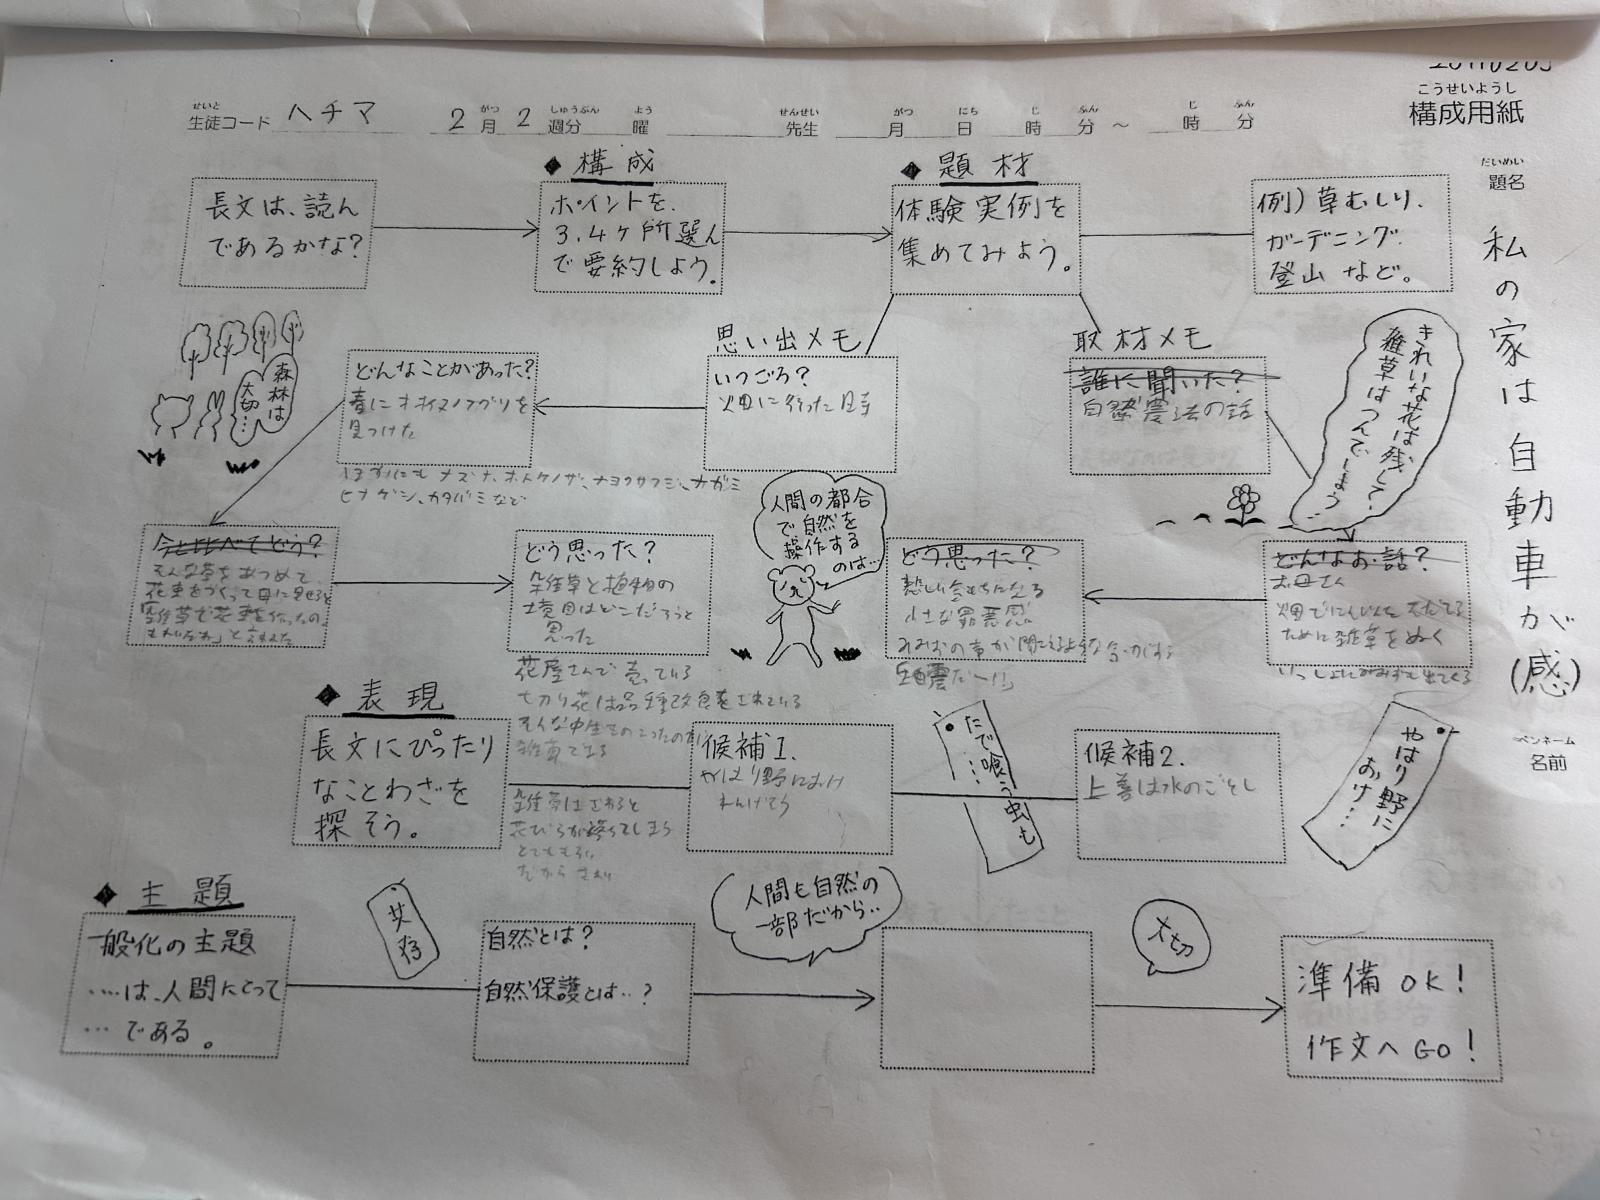 こうせいようし
構成用紙
せいと
生徒コード ハチマ
2月 2週分 曜
がつ しゅうぶん よう
せんせい
先生
がつ にち じ ふん じ ふん
月 日 時 分 ～ 時 分
だいめい
題名
私の家は自動車が(感)
ペンネーム
名前
長文は、読ん
であるかな?
◆ 構成
ポイントを、
3.4ヶ所選ん
で要約しよう。
◆ 題材
体験実例を
集めてみよう。
例) 草むしり、
ガーデニング、
登山など。
思い出メモ
いつごろ?
畑に行った時
取材メモ
誰に聞いた?
自然農法の話
きれいな花は残して、
雑草はつんでしまう…
どんなことがあった?
春にオオイヌノフグリを
見つけた
ほかにもナズナ、ホトケノザ、ナヨクサフジ、ナガミ
ヒナゲシ、カタバミなど
森林は
大切…
今と比べてどう?
そんな草をあつめて
花束をつくって母に見せると
「雑草で花束を作ったの。
きれいだね」と言われた
どう思った?
雑草と植物の
境目はどこだろうと
思った
花屋さんで売っている
切り花は品種改良をされている
雑草はさわると
花びらが落ちてしまう
とてももろい
だから
人間の都合
で自然を
操作する
のは…
どう思った?
悲しい気もちになる
小さな罪悪感
みみずの声が聞こえるような気がする
地震だー!!
どんなお話?
お母さん
畑でにんじんをそだてる
ために雑草をぬく
いっしょにみみずも出てくる
◆ 表現
長文にぴったり
なことわざを
探そう。
候補1.
やはり野におけ
れんげそう
たで喰う虫も
……
候補2.
上善は水のごとし
やはり野に
おけ…
◆ 主題
一般化の主題
……は、人間にとって
…である。
共存
自然とは?
自然保護とは…?
人間も自然の
一部だから…
大切
準備OK!
作文へGO!